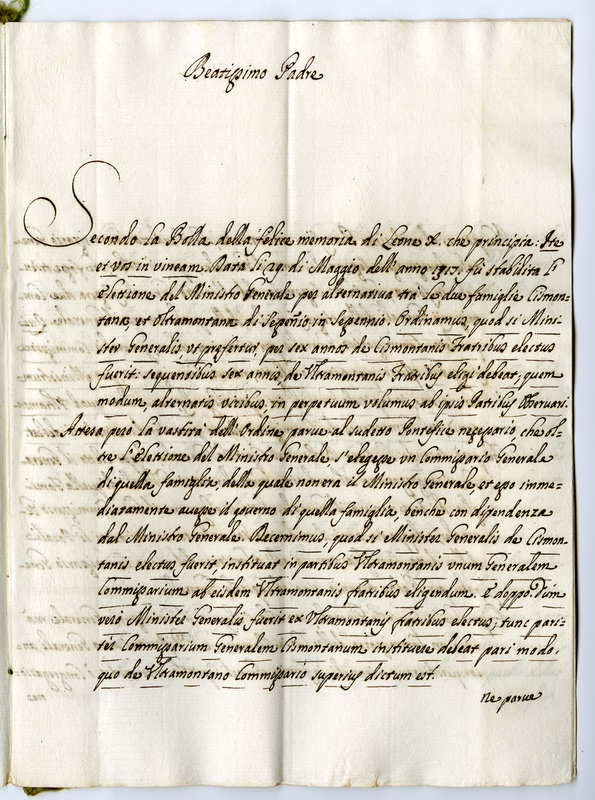 Beatissimo Padre
Secondo la Bolla della felice memoria di Leone X. che principia: Ite
et vos in vineam. Data li 29. di Maggio dell'anno 1517. fù stabilita l'
elettione del Ministro Generale per alternativa trà le due famiglie Cismon=
tana, et Oltramontana di Sepenio, in Sepennio. Ordinamus, quod si Mini-
ster Generalis ut prefertur, per sex annos de Cismontanis Fratribus electus
fuerit: sequentibus sex annis, de Vltramontanis Fratribus eligi debeat, quem
modum, alternatis vicibus, in perpetuum volumus ab ipsis Fratribus observari.
Attesa però la vastità dell'Ordine parve al sudetto Pontefice necessario, che ol-
tre l'Elettione del Ministro Generale, s'elegesse un Commissario Generale
di quella famiglia, della quale non era il Ministro Generale, et esso imme=
diatamente avesse il governo di quella famiglia, benche con dipendenza
dal Ministro Generale. Decernimus, quod si Minister Generalis de Cismon-
tanis electus fuerit, instituat in partibus Vltramontanis unum Generalem
Commissarium ab eisdem Vltramontanis fratribus eligendum. E doppo. Dum
verò Minister Generalis fuerit ex Vltramontanis fratribus electus; tunc pari-
ter Commissarium Generalem Cismontanum instituere debeat pari modo,
quo de Vltramontano Commissario superius dictum est.
ne parve